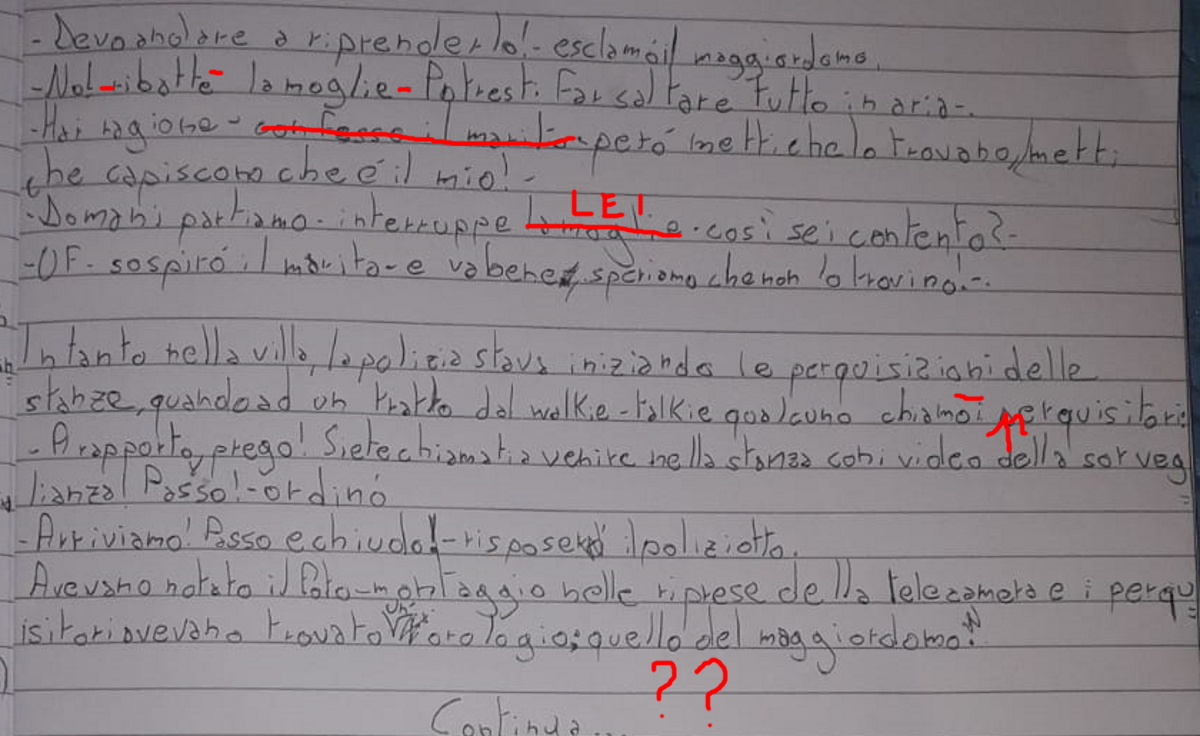 - Devo andare a riprenderlo!- esclamó il maggiordomo.
- No!-ribatté- la moglie- Potresti far saltare tutto in aria-.
- Hai ragione- confessò il marito- peró metti che lo trovano, metti
che capiscono che é il mio!-
- Domani partiamo- interruppe la moglie LEI - cosí sei contento?-
- UF- sospiró il marito- e va bene, speriamo che non lo trovino!-.
Intanto nella villa, la polizia stava iniziando le perquisizioni delle
stanze, quando ad un tratto dal walkie-talkie qualcuno chiamó i perquisitori
- A rapporto, prego! Siete chiamati a venire nella stanza con i video della sorveg
lianza! Passo!-ordinó
- Arriviamo! Passo e chiudo!-rispose il poliziotto.
Avevano notato il foto-montaggio nelle riprese della telecamera e i perqu
isitori avevano trovato un orologio; quello del maggiordomo!
??
Continua...